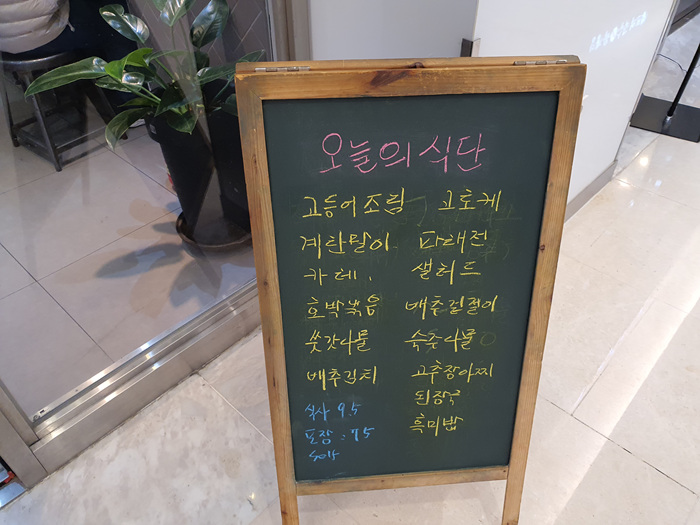 오늘의 식단
고등어조림, 고로케
계란말이 파래전
카레, 샐러드
호박볶음 배추겉절이
쑥갓나물 숙주나물
배추김치 고추장아찌
된장국
식사 9.5 흑미밥
포장 : 7.5